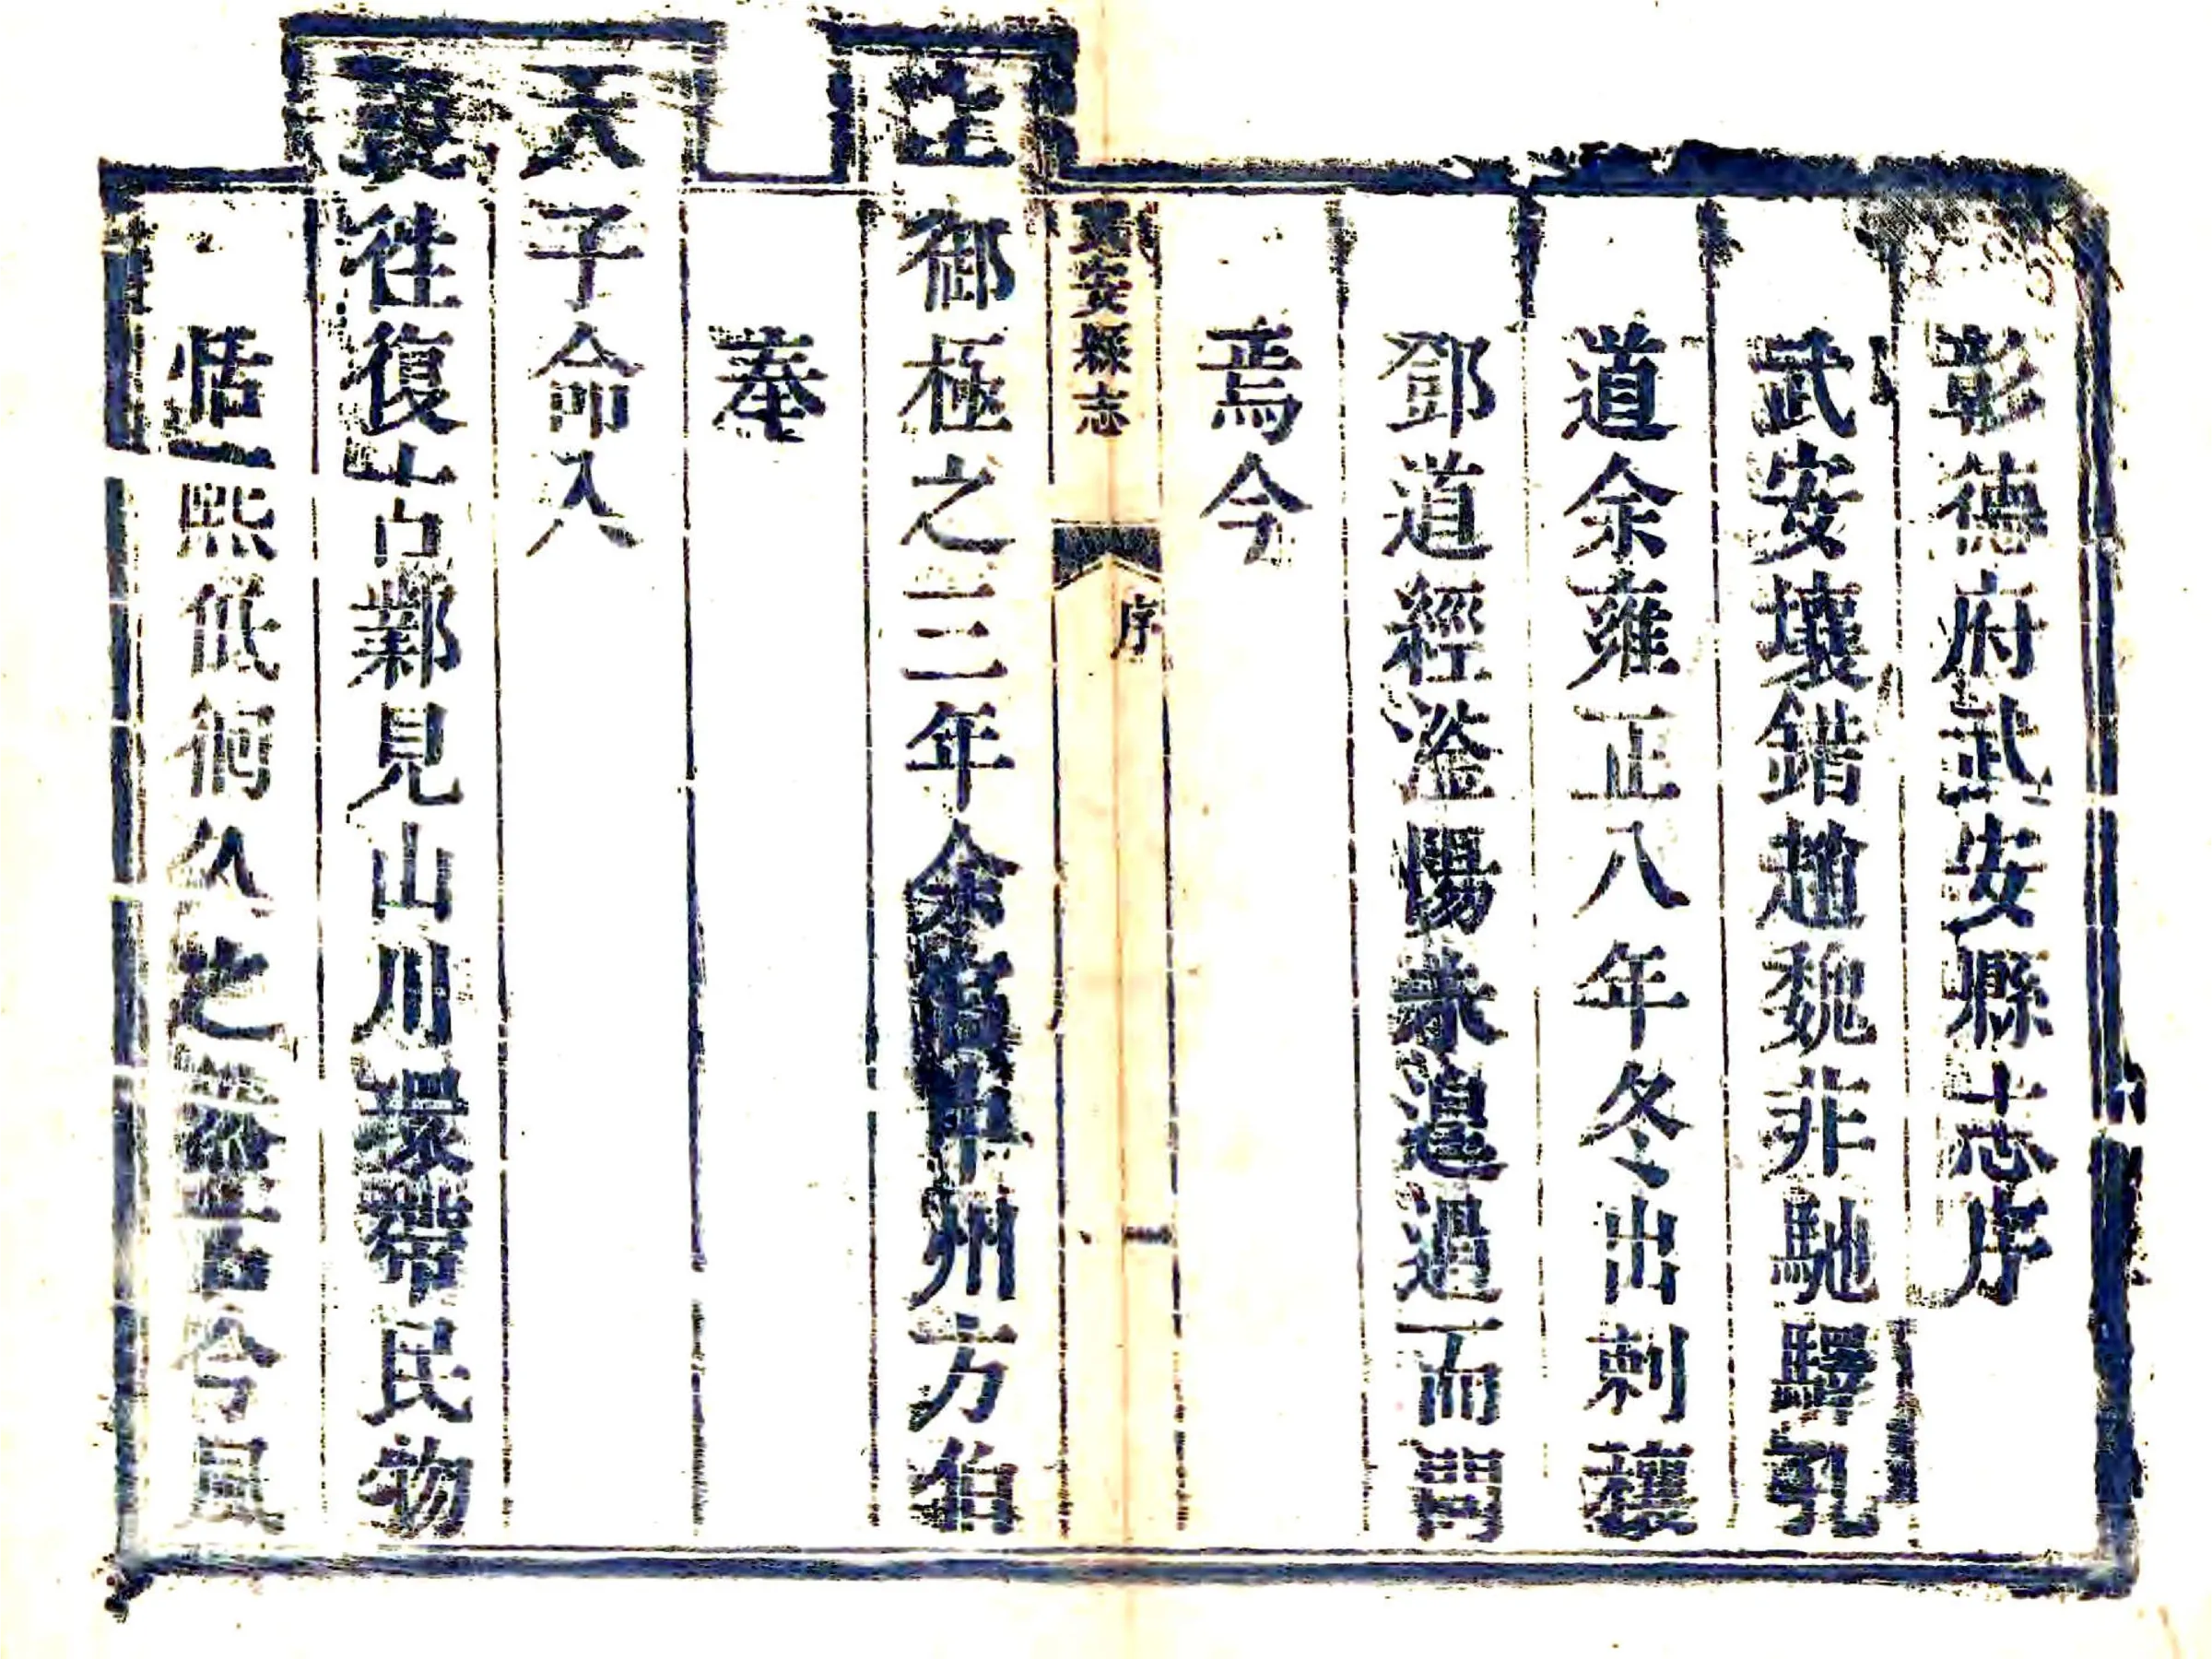 彰德府武安縣志序
武安壤錯趙魏非馳驛孔
道余雍正八年冬出刺穰
鄧道經滏陽未遑過而問
焉今
武安縣志
序
一
御極之三年余官中州方伯
奉
天子命入
覲往復古鄴見山川環帶民物
恬熙低徊久之
古今風